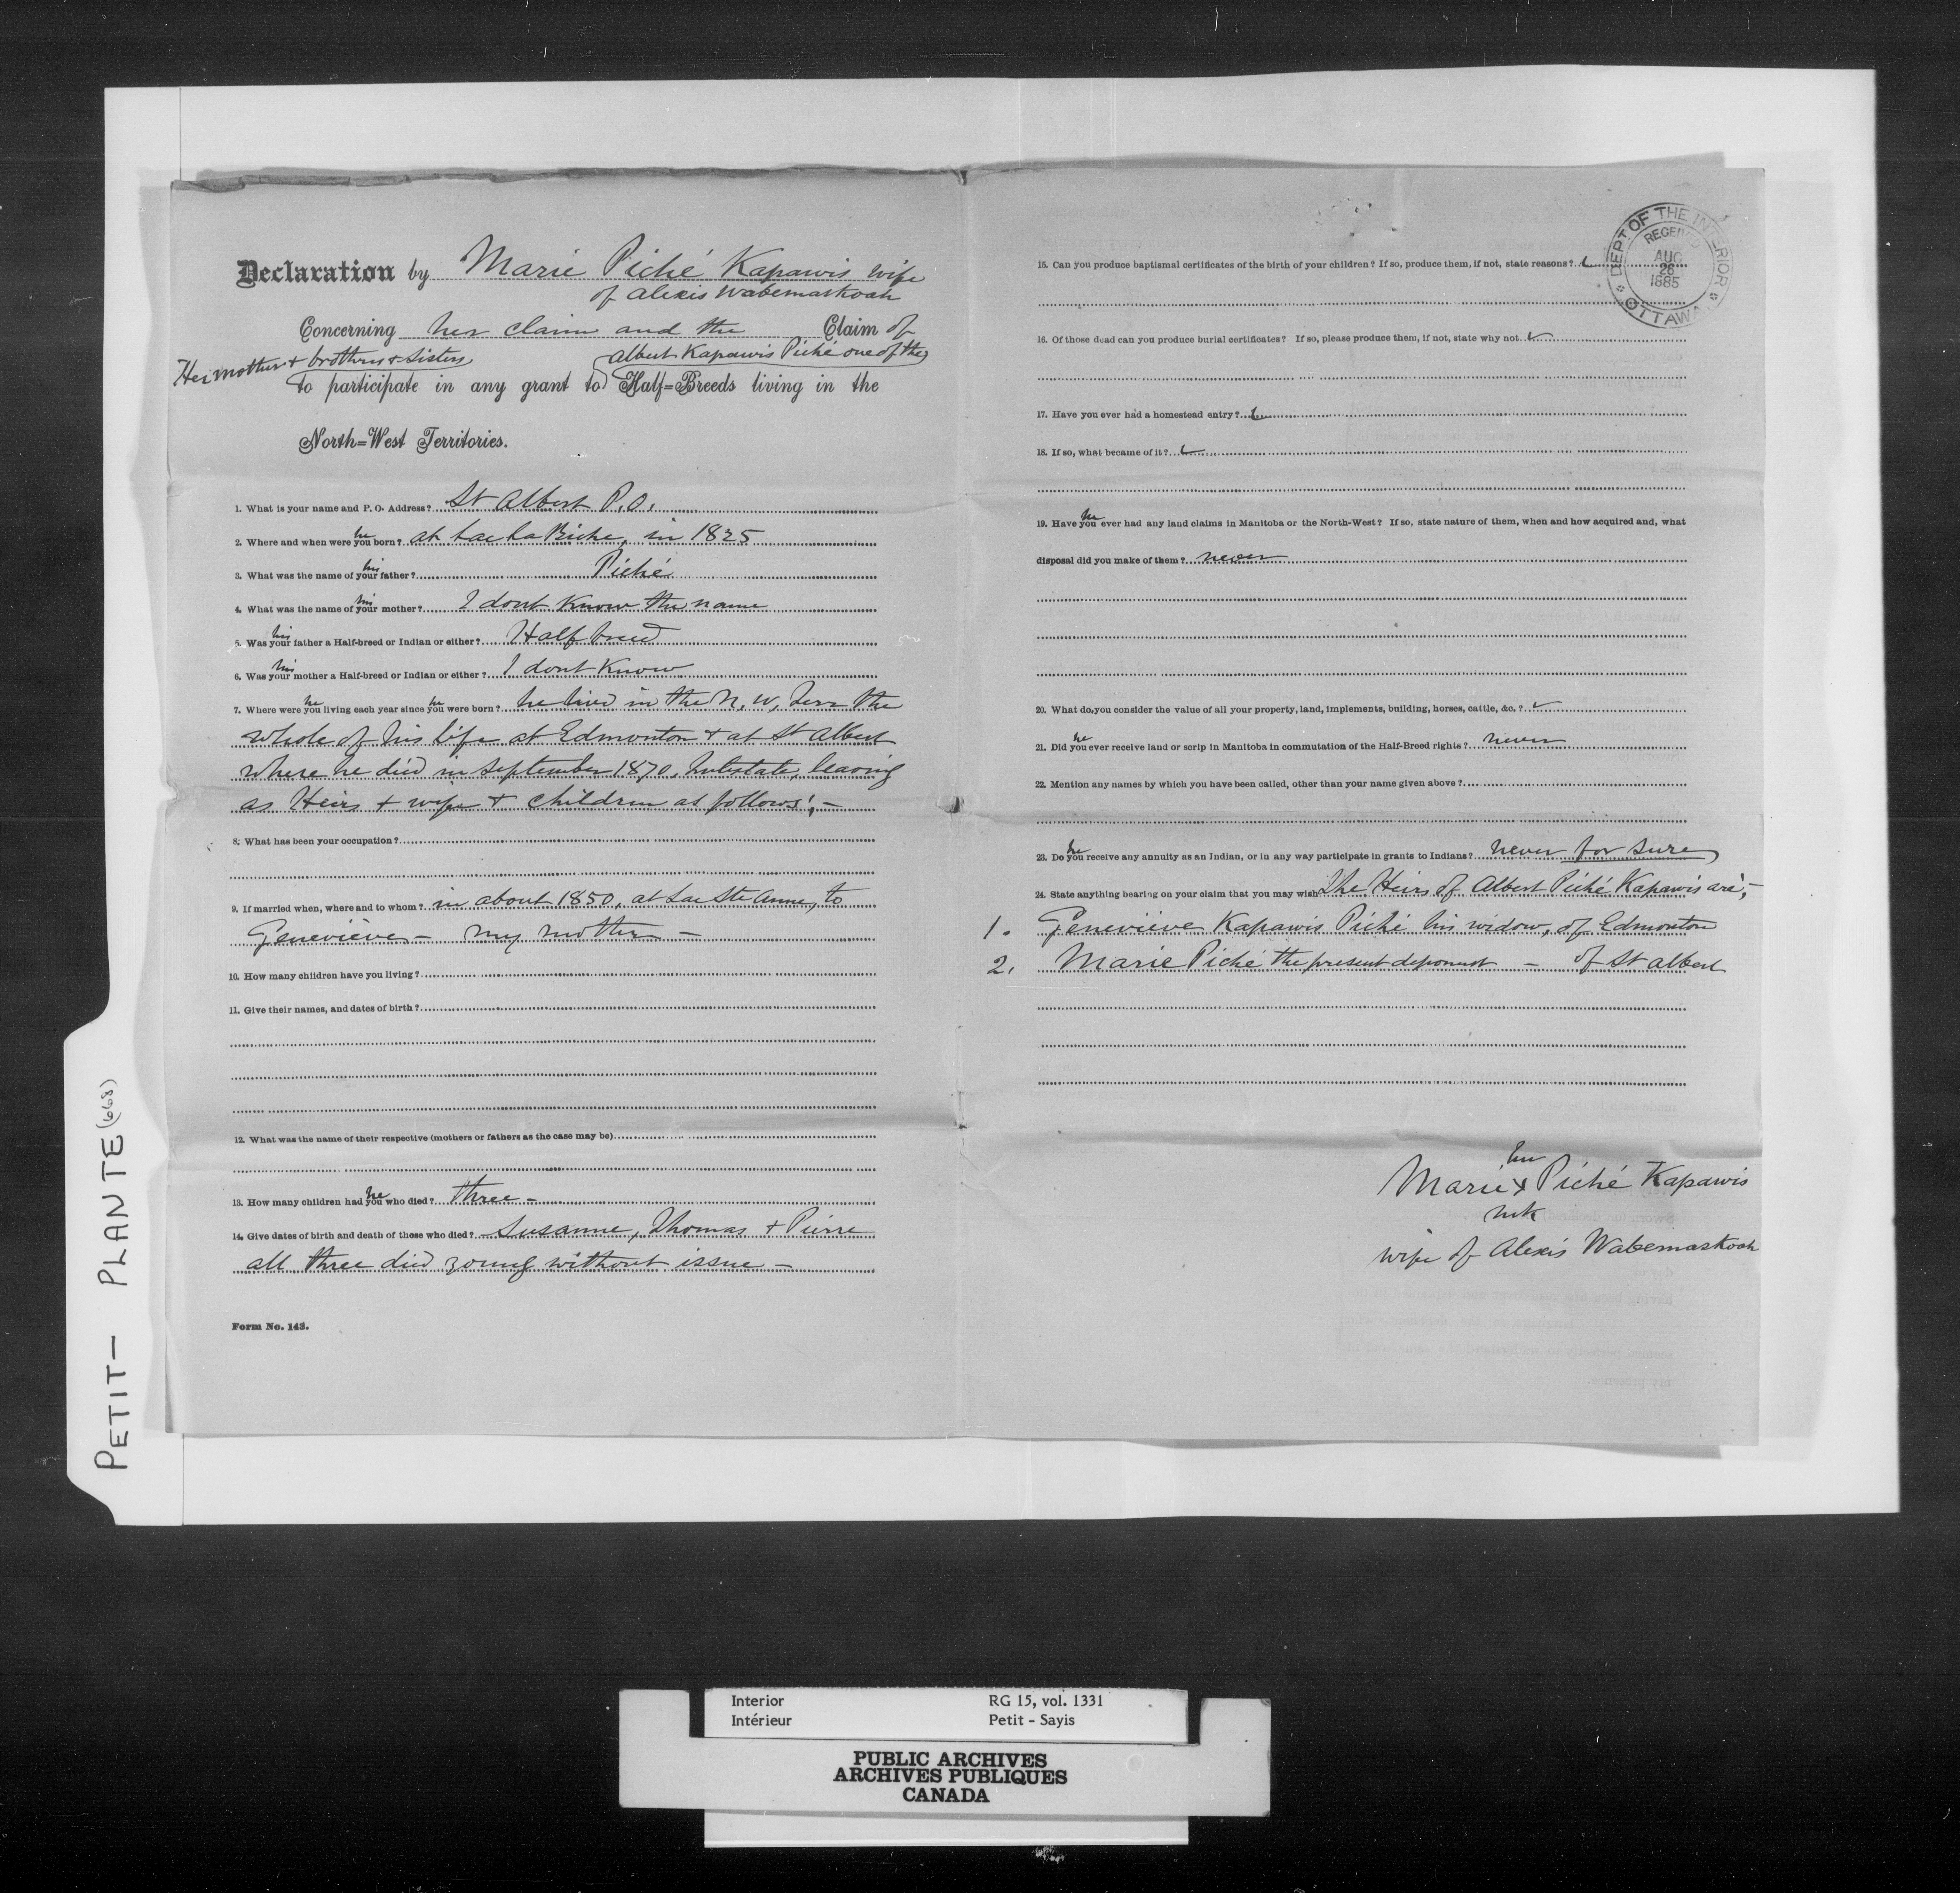 Declaration by Marie Piché Kapawis wife
of Alexis Wabemaskoah
Concerning her claim and the Claim of
Her mother & brothers & sisters
Albert Kapawis Piché one of the
to participate in any grant to Half-Breeds living in the
North-West Territories.
1. What is your name and P. O. Address? St Albert P.O.
he
2. Where and when were you born? at Lac La Biche, in 1825
his
3. What was the name of your father? Piché
his
4. What was the name of your mother? I dont Know the name
his
5. Was your father a Half-breed or Indian or either? Half breed
his
6. Was your mother a Half-breed or Indian or either? I dont Know
he he
7. Where were you living each year since you were born? he lived in the N. W. Terr the
whole of his life at Edmonton & at St Albert
where he died in September 1870, Intestate, leaving
as Heirs & wife & children as follows:-
8. What has been your occupation?
9. If married when, where and to whom? in about 1850, at Lac Ste Anne, to
Geneviève - my mother -
10. How many children have you living?
11. Give their names, and dates of birth?
12. What was the name of their respective (mothers or fathers as the case may be)
he
13. How many children had you who died? three -
14. Give dates of birth and death of those who died? Susanne, Thomas & Pierre
all three died young without issue -
Form No. 143.
15. Can you produce baptismal certificates of the birth of your children? If so, produce them, if not, state reasons?
16. Of those dead can you produce burial certificates? If so, please produce them, if not, state why not.
17. Have you ever had a homestead entry?
18. If so, what became of it?
he
19. Have you ever had any land claims in Manitoba or the North-West? If so, state nature of them, when and how acquired and, what
disposal did you make of them? never
20. What do you consider the value of all your property, land, implements, building, horses, cattle, &c.?
he
21. Did you ever receive land or scrip in Manitoba in commutation of the Half-Breed rights? never
22. Mention any names by which you have been called, other than your name given above?
he
23. Do you receive any annuity as an Indian, or in any way participate in grants to Indians? never for sure
24. State anything bearing on your claim that you may wish The Heirs of Albert Piché Kapawis are:-
1. Geneviève Kapawis Piché his widow, of Edmonton
2. Marie Piché the present deponent - of St Albert
her
Marie x Piché Kapawis
mk
wife of Alexis Wabemaskoah
DEPT OF THE INTERIOR
RECEIVED
AUG
26
1885
OTTAWA
PETIT - PLANTE (668)
Interior RG 15, vol. 1331
Intérieur Petit - Sayis
PUBLIC ARCHIVES
ARCHIVES PUBLIQUES
CANADA